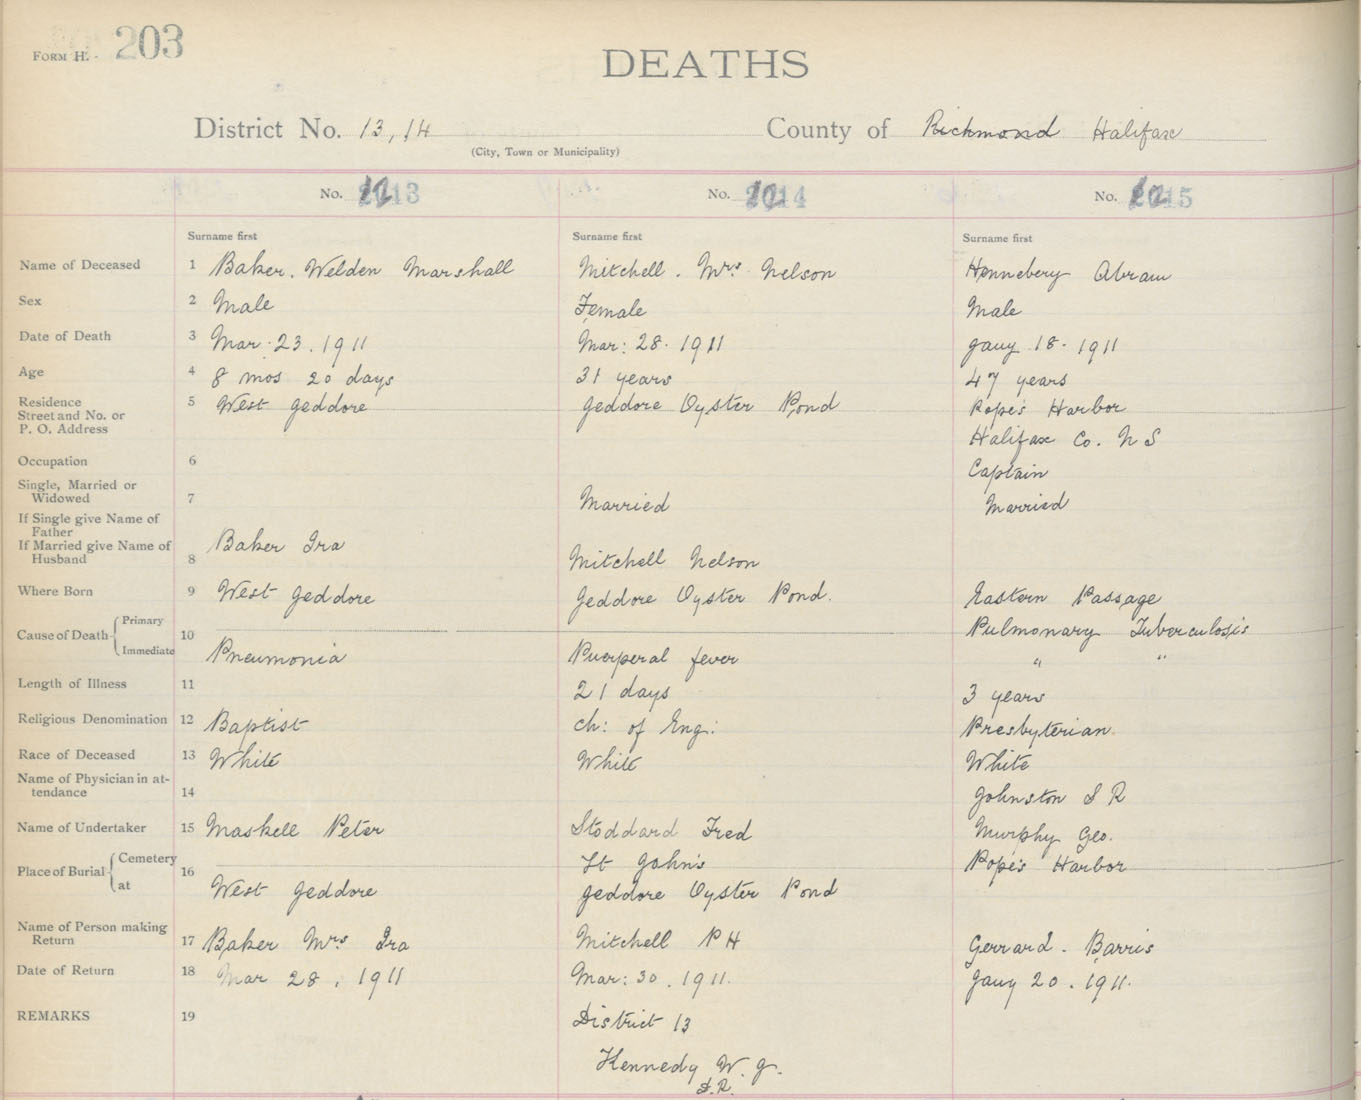 FORM H. 203
DEATHS
District No. 13, 14
County of Richmond Halifax
(City, Town or Municipality)
No. 1213
No. 1214
No. 1215
Surname first
Surname first
Surname first
Name of Deceased 1 Baker. Welden Marshall
Mitchell. Mrs. Nelson
Hennebery Abram
Sex 2 Male
Female
Male
Date of Death 3 Mar. 23. 1911
Mar: 28. 1911
Jany 18. 1911
Age 4 8 mos 20 days
31 years
47 years
Residence
Street and No. or
P. O. Address
5 West Jeddore
Jeddore Oyster Pond
Pope's Harbor
Halifax Co. N S
Occupation 6
Captain
Single, Married or
Widowed 7
Married
Married
If Single give Name of
Father
If Married give Name of
Husband 8
Baker Ira
Mitchell Nelson
Where Born 9 West Jeddore
Jeddore Oyster Pond.
Eastern Passage
Cause of Death 10
Primary
Immediate
Pneumonia
Puerperal fever
Pulmonary Tuberculosis
" "
Length of Illness 11
21 days
3 years
Religious Denomination 12 Baptist
ch: of Eng:
Presbyterian
Race of Deceased 13 White
White
White
Name of Physician in at-
tendance 14
Johnston S R
Name of Undertaker 15 Maskell Peter
Stoddard Fred
Murphy Geo.
Place of Burial 16
Cemetery
at
West Jeddore
St John's
Jeddore Oyster Pond
Pope's Harbor
Name of Person making
Return 17 Baker Mrs Ira
Mitchell P H
Gerrard. Barris
Date of Return 18 Mar 28. 1911
Mar: 30. 1911.
Jany 20. 1911.
REMARKS 19
District 13
Kennedy W. J.
D.R.